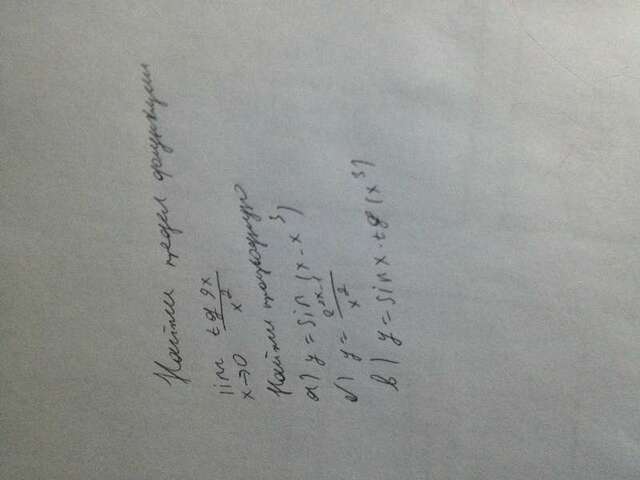 Найти предел функции
lim x→0 tg 9x / x²
Найти производную
а) y = sin (x - x³)
б) y = e²ˣ⁻¹ / x²
в) y = sin x · tg (x³)